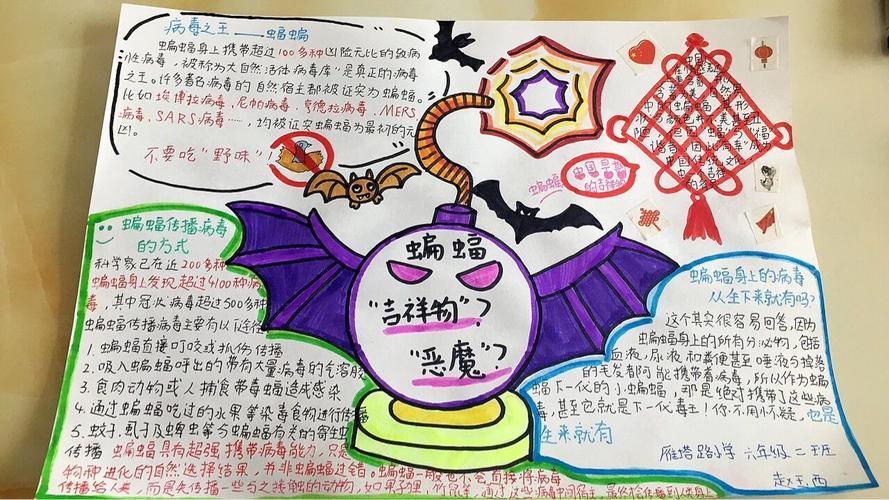 病毒之王——蝙蝠
蝙蝠身上携带超过100多种凶险无比的致病
性病毒，被称为大自然活体病毒库"是真正的病毒
之王。许多著名病毒的自然宿主都被证实为蝙蝠。
比如埃博拉病毒、尼帕病毒、亨德拉病毒、MERS
病毒、SARS病毒……，均被证实蝙蝠为最初的元
凶。
不要吃"野味"！
蝙蝠
中国
的吉祥物
中国
中的蝙蝠
中国传统文化
蝙蝠传播病毒
的方式
科学家已在近200多种
蝙蝠身上发现超过4100种病
毒，其中冠状病毒超过500多种
蝙蝠传播病毒主要有以下途径
1.蝙蝠直接叮咬或抓伤传播
2.吸入蝙蝠呼出的带有大量病毒的气溶胶
3.食肉动物或人捕食带毒蝙蝠造成感染
4.通过蝙蝠吃过的水果等染毒食物进行传播
5.蚊子、虱子及蜱虫等与蝙蝠有关的寄生虫
传播 蝙蝠具有超强携带病毒能力，只是
物种进化的自然选择结果，并非蝙蝠过错。蝙蝠一般也不会直接将病毒
传播给人类，而是先传播一些与之接触的动物，如果子狸、竹鼠等，通过这些病毒中间宿主，最终传染到人身上
蝙蝠
"吉祥物"？
"恶魔"？
蝙蝠身上的病毒
从生下来就有吗？
这个其实很容易回答，因为
蝙蝠身上的所有分泌物，包括
血液、尿液和粪便甚至唾液与掉落
的毛发都可能携带着病毒，所以作为蝙
蝠下一代的小蝙蝠，那是绝对携带了这些病
毒，甚至它就是下一代毒王！你不用怀疑，也是
生来就有
雁塔路小学 六年级二班
赵玉西